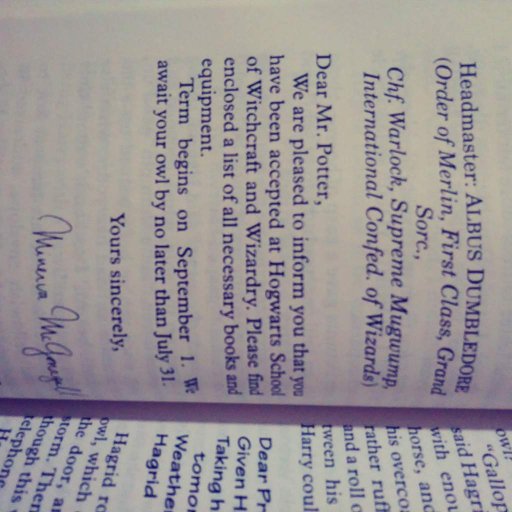 Headmaster: ALBUS DUMBLEDORE
(Order of Merlin, First Class, Grand
Sorc.,
Chf. Warlock, Supreme Mugwump,
International Confed. of Wizards)
Dear Mr. Potter,
We are pleased to inform you that you
have been accepted at Hogwarts School
of Witchcraft and Wizardry. Please find
enclosed a list of all necessary books and
equipment.
Term begins on September 1. We
await your owl by no later than July 31.
Yours sincerely,
Minerva McGonagall
owl.
"Gallop
said Hagri
with enou
horse, and
his overco
rather ruff
and a roll o
tween his
Harry coul
Dear Pr
Given H
Taking h
tomo
Weathe
Hagrid
Hagrid ro
owl, which
the door, a
storm. Then
though
teleph
H